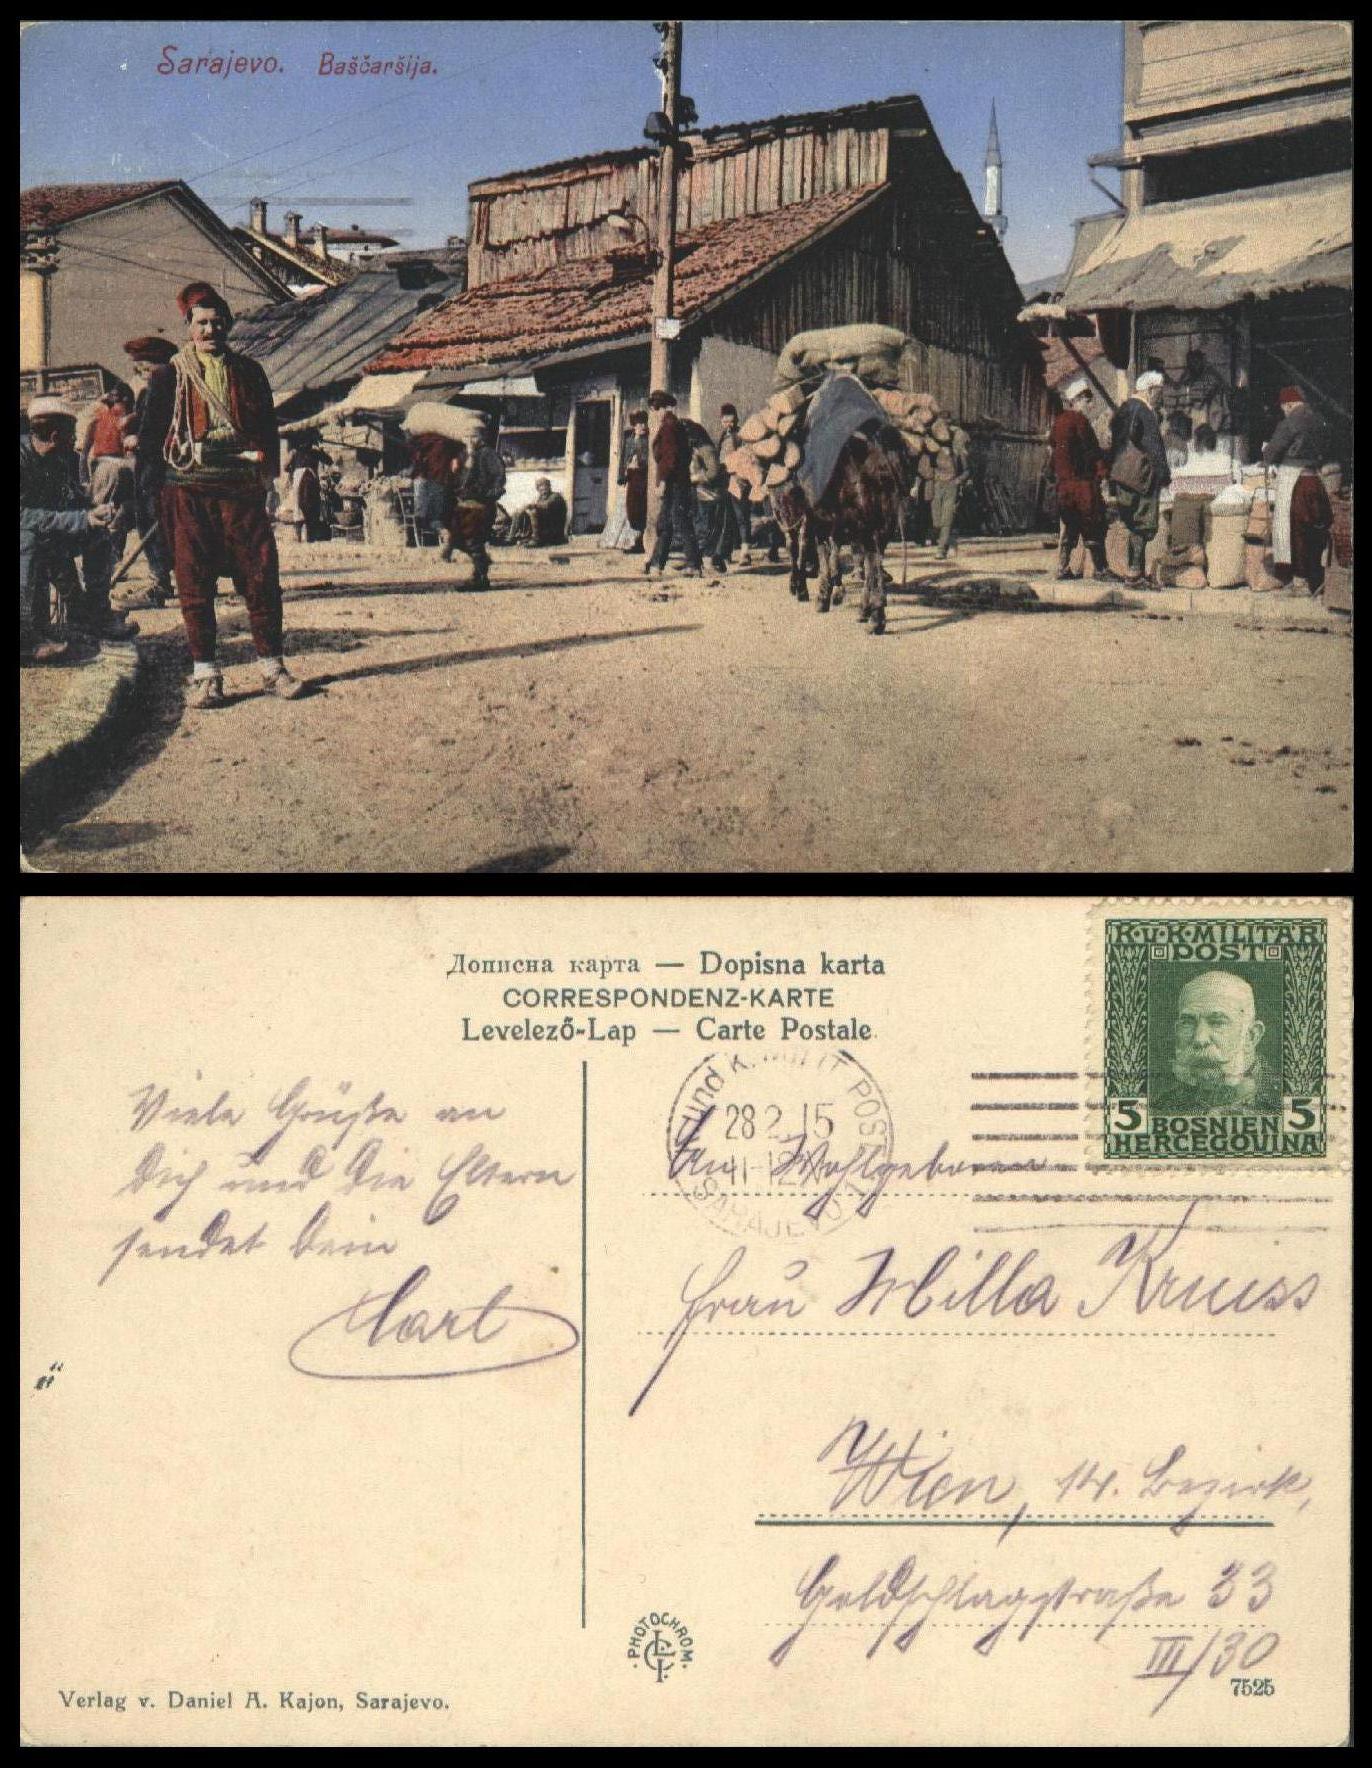 Sarajevo. Baščaršija.
Дописна карта — Dopisna karta
CORRESPONDENZ-KARTE
Levelező-Lap — Carte Postale
K.u.K. MILITÄR
POST
5 BOSNIEN 5
HERCEGOVINA
und K. MILIT POST
28 2 15
11-12
SARAJEVO 1
Viele Grüße an
Dich und die Eltern
sendet Dein
Carl
An Wohlgeboren
Frau Milla Kruiss
Wien, 14. Bezirk,
Goldschlagstraße 33
III/30
PHOTOCHROM.
7525
Verlag v. Daniel A. Kajon, Sarajevo.